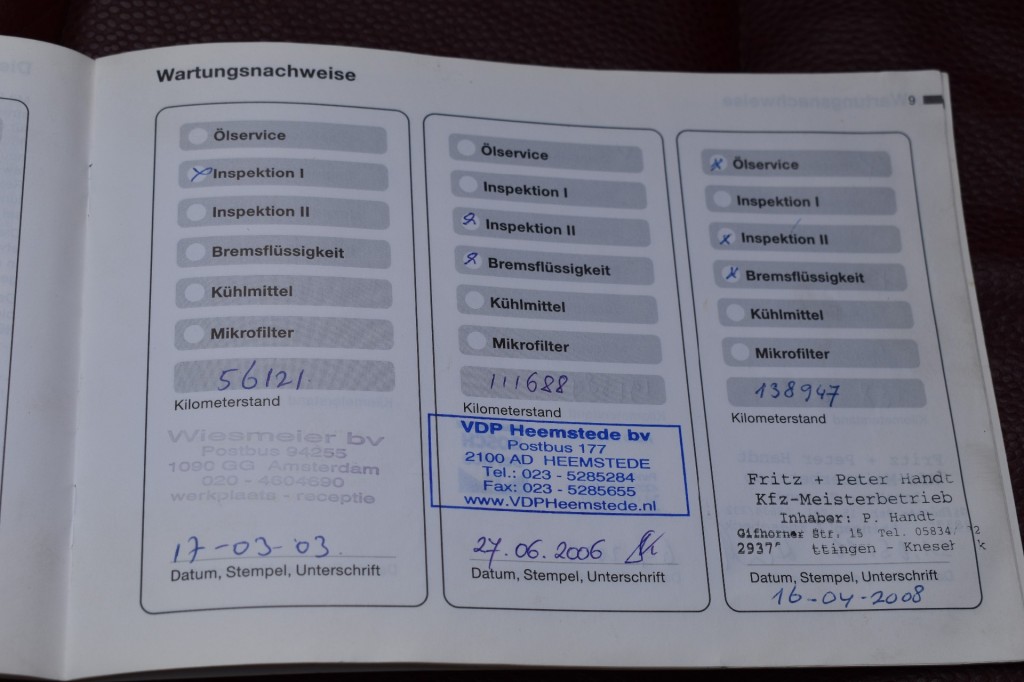 Wartungsnachweise
9
Ölservice
Inspektion I
Inspektion II
Bremsflüssigkeit
Kühlmittel
Mikrofilter
56121
Kilometerstand
Wiesmeier bv
Postbus 94255
1090 GG Amsterdam
020 - 4604690
werkplaats - receptie
17-03-03.
Datum, Stempel, Unterschrift
Ölservice
Inspektion I
Inspektion II
Bremsflüssigkeit
Kühlmittel
Mikrofilter
111688
Kilometerstand
VDP Heemstede bv
Postbus 177
2100 AD HEEMSTEDE
Tel.: 023 - 5285284
Fax: 023 - 5285655
www.VDPHeemstede.nl
27.06.2006
Datum, Stempel, Unterschrift
Ölservice
Inspektion I
Inspektion II
Bremsflüssigkeit
Kühlmittel
Mikrofilter
138947
Kilometerstand
Fritz + Peter Handt
Kfz-Meisterbetrieb
Inhaber: P. Handt
Gifhorner Str. 15 Tel. 05834/
- Knesebeck
Datum, Stempel, Unterschrift
16-04-2008